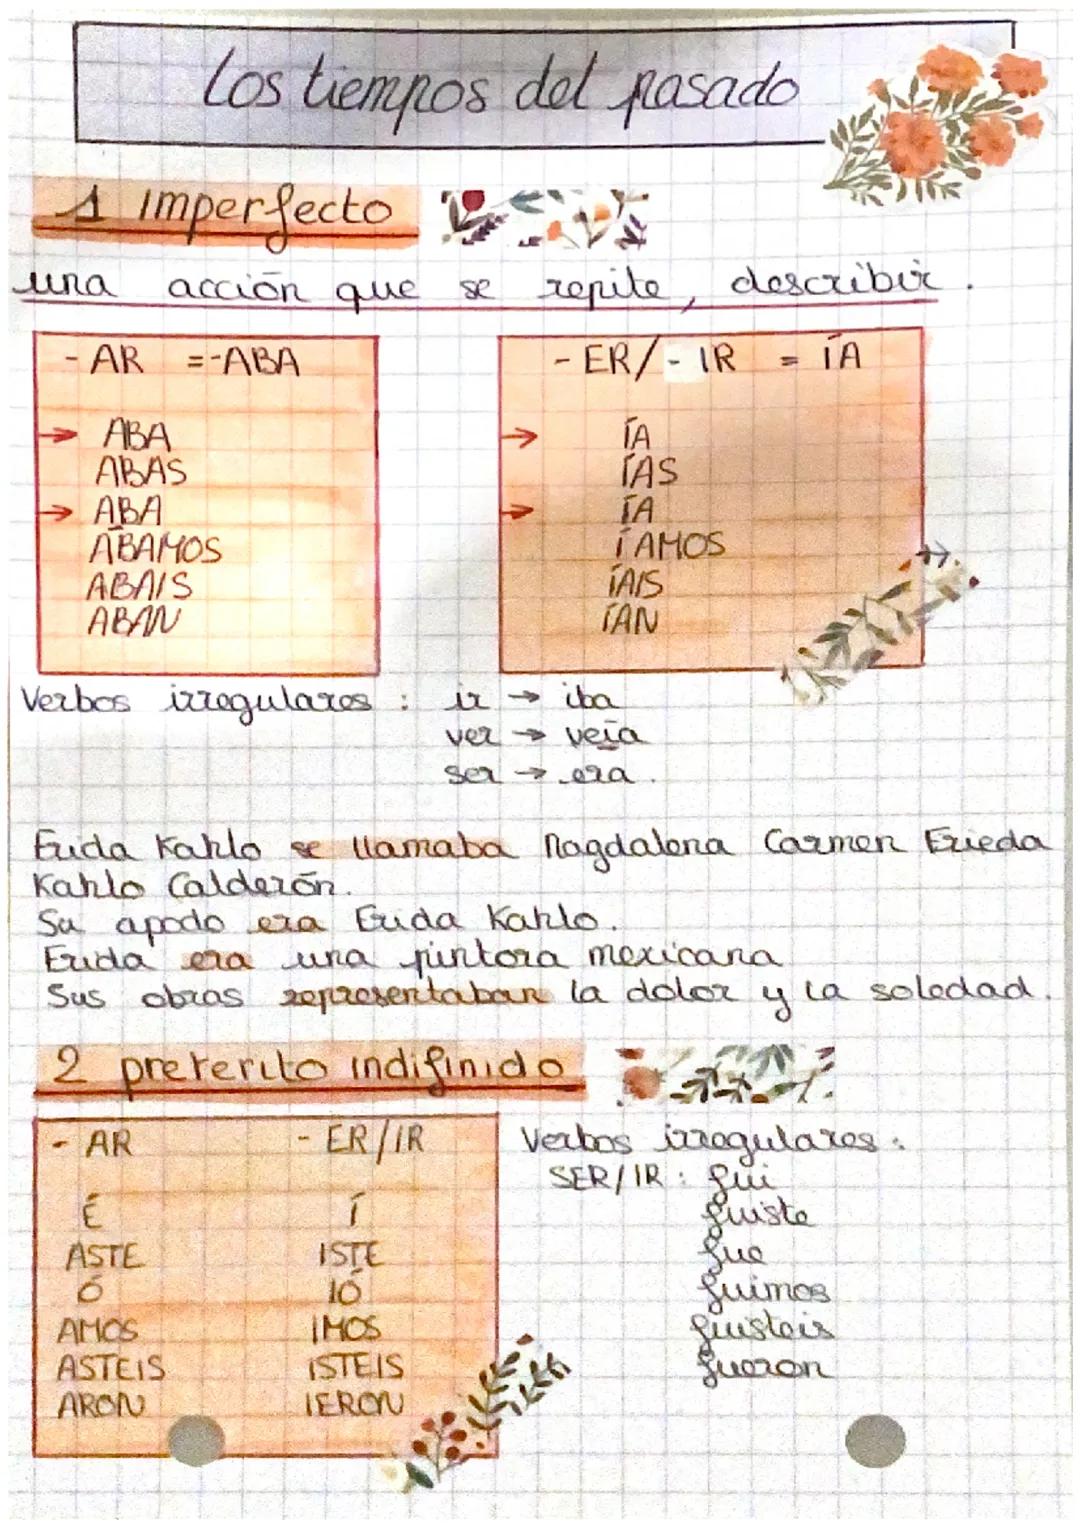 Los tiempos del pasado
1 imperfecto
una acción que se repite, describir.
- AR = -ABA
ABA
ABAS
ABA
ÁBAMOS
ABAIS
ABAN
- ER/- IR = ÍA
ÍA
ÍAS
ÍA
ÍAMOS
ÍAIS
ÍAN
Verbos irregulares : ir → iba
ver → veía
ser → era.
Frida Kahlo se llamaba Magdalena Carmen Frieda
Kahlo Calderón.
Su apodo era Frida Kahlo.
Frida era una pintora mexicana
Sus obras representaban la dolor y la soledad.
2 preterito indifinido
- AR - ER/IR
É Í
ASTE ISTE
Ó IÓ
AMOS IMOS
ASTEIS ISTEIS
ARON IERON
Verbos irregulares :
SER/IR : fui
fuiste
fue
fuimos
fuisteis
fueron